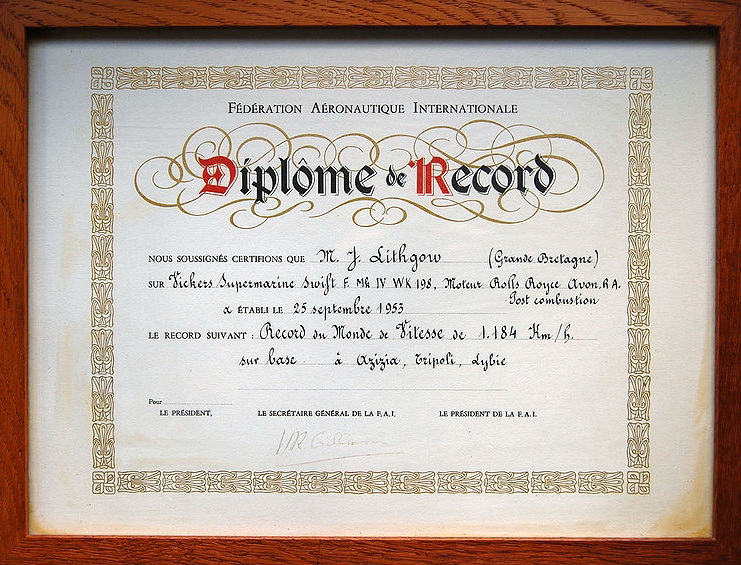 FÉDÉRATION AÉRONAUTIQUE INTERNATIONALE
Diplôme de Record
NOUS SOUSSIGNÉS CERTIFIONS QUE M. J. Lithgow (Grande Bretagne)
SUR Vickers Supermarine Swift F Mk IV WK 198, Moteur Rolls Royce Avon.R.A.
Post combustion
a ÉTABLI LE 25 septembre 1953
LE RECORD SUIVANT : Record du Monde de Vitesse de 1.184 Km/h.
sur base à Azizia, Tripoli, Lybie
Pour
LE PRÉSIDENT, LE SECRÉTAIRE GÉNÉRAL DE LA F.A.I. LE PRÉSIDENT DE LA F.A.I.